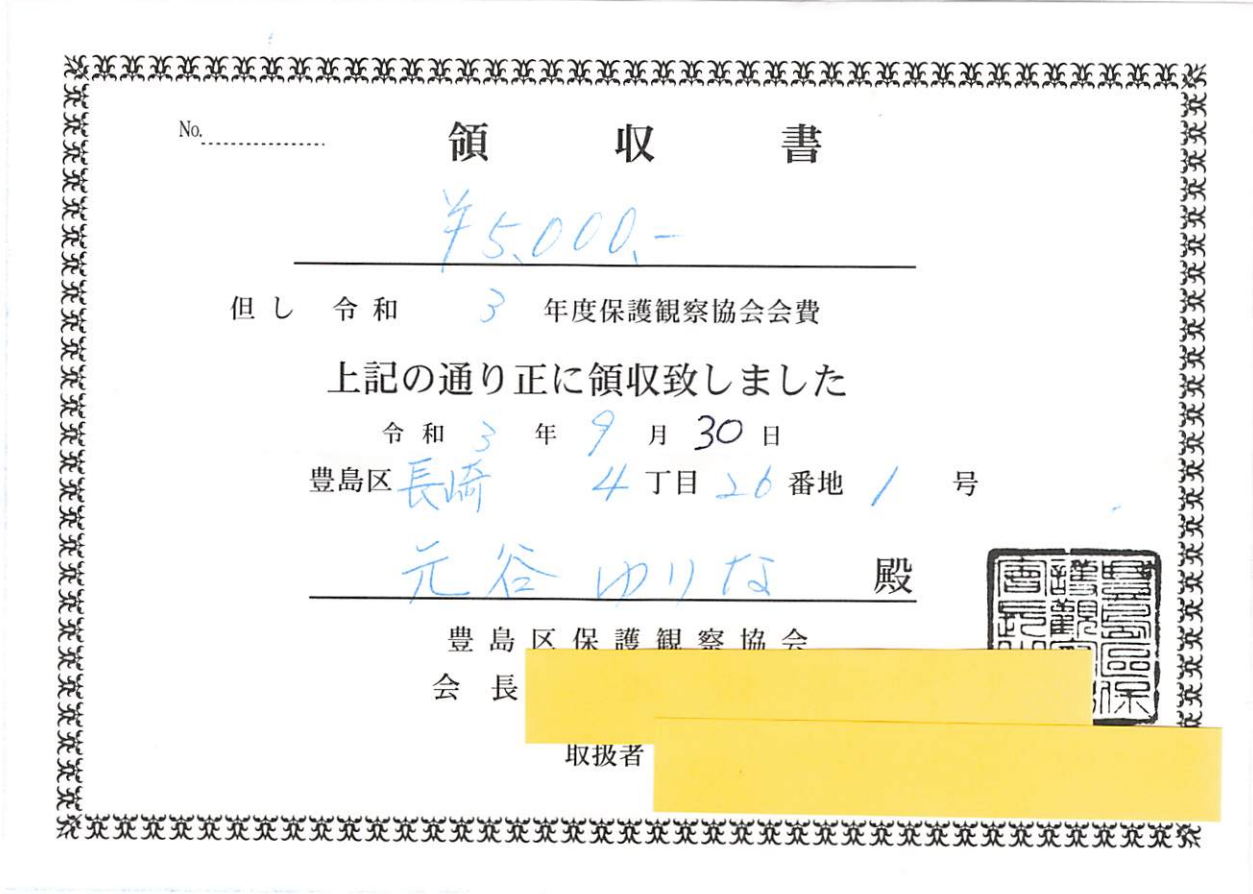 No.
領収書
¥5,000,-
但し 令和 3 年度保護観察協会会費
上記の通り正に領収致しました
令和 3 年 9 月 30 日
豊島区 長崎 4 丁目 26 番地 1 号
元谷 ゆりな 殿
豊島区保護観察協会
会長
取扱者